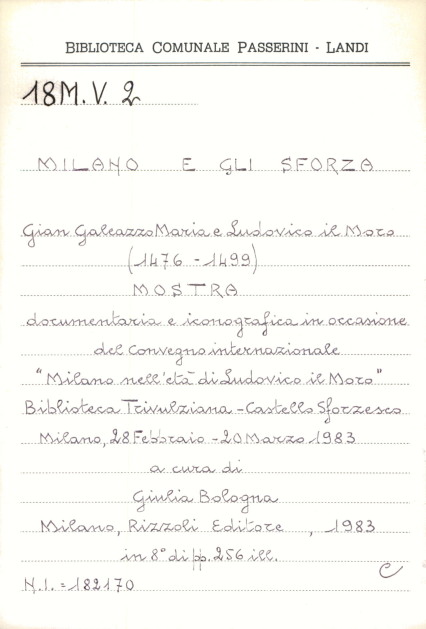 BIBLIOTECA COMUNALE PASSERINI - LANDI
18M.V. 2
MILANO E GLI SFORZA
Gian Galeazzo Maria e Ludovico il Moro
(1476 - 1499)
MOSTRA
documentaria e iconografica in occasione
del Convegno internazionale
"Milano nell'età di Ludovico il Moro"
Biblioteca Trivulziana - Castello Sforzesco
Milano, 28 Febbraio - 20 Marzo 1983
a cura di
Giulia Bologna
Milano, Rizzoli Editore , 1983
in 8° di pp. 256 ill.
C
N.I. = 182170